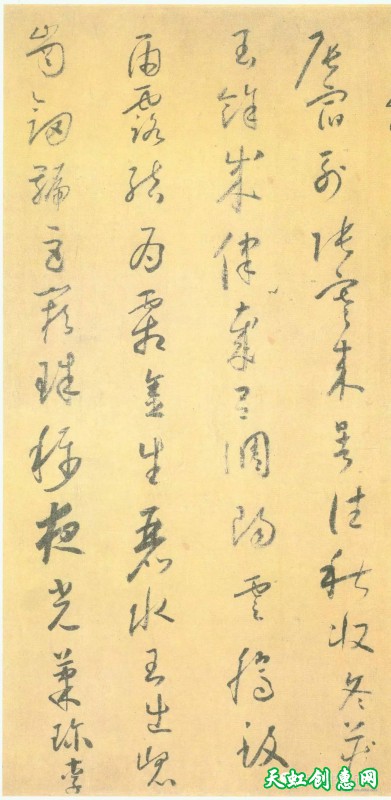 辰宿列張寒來暑往秋收冬藏
閏餘成律歲呂調陽雲騰致
雨露結為霜金生麗水玉出崑
崗劍號巨闕珠稱夜光菓珍李
天虹创惠网